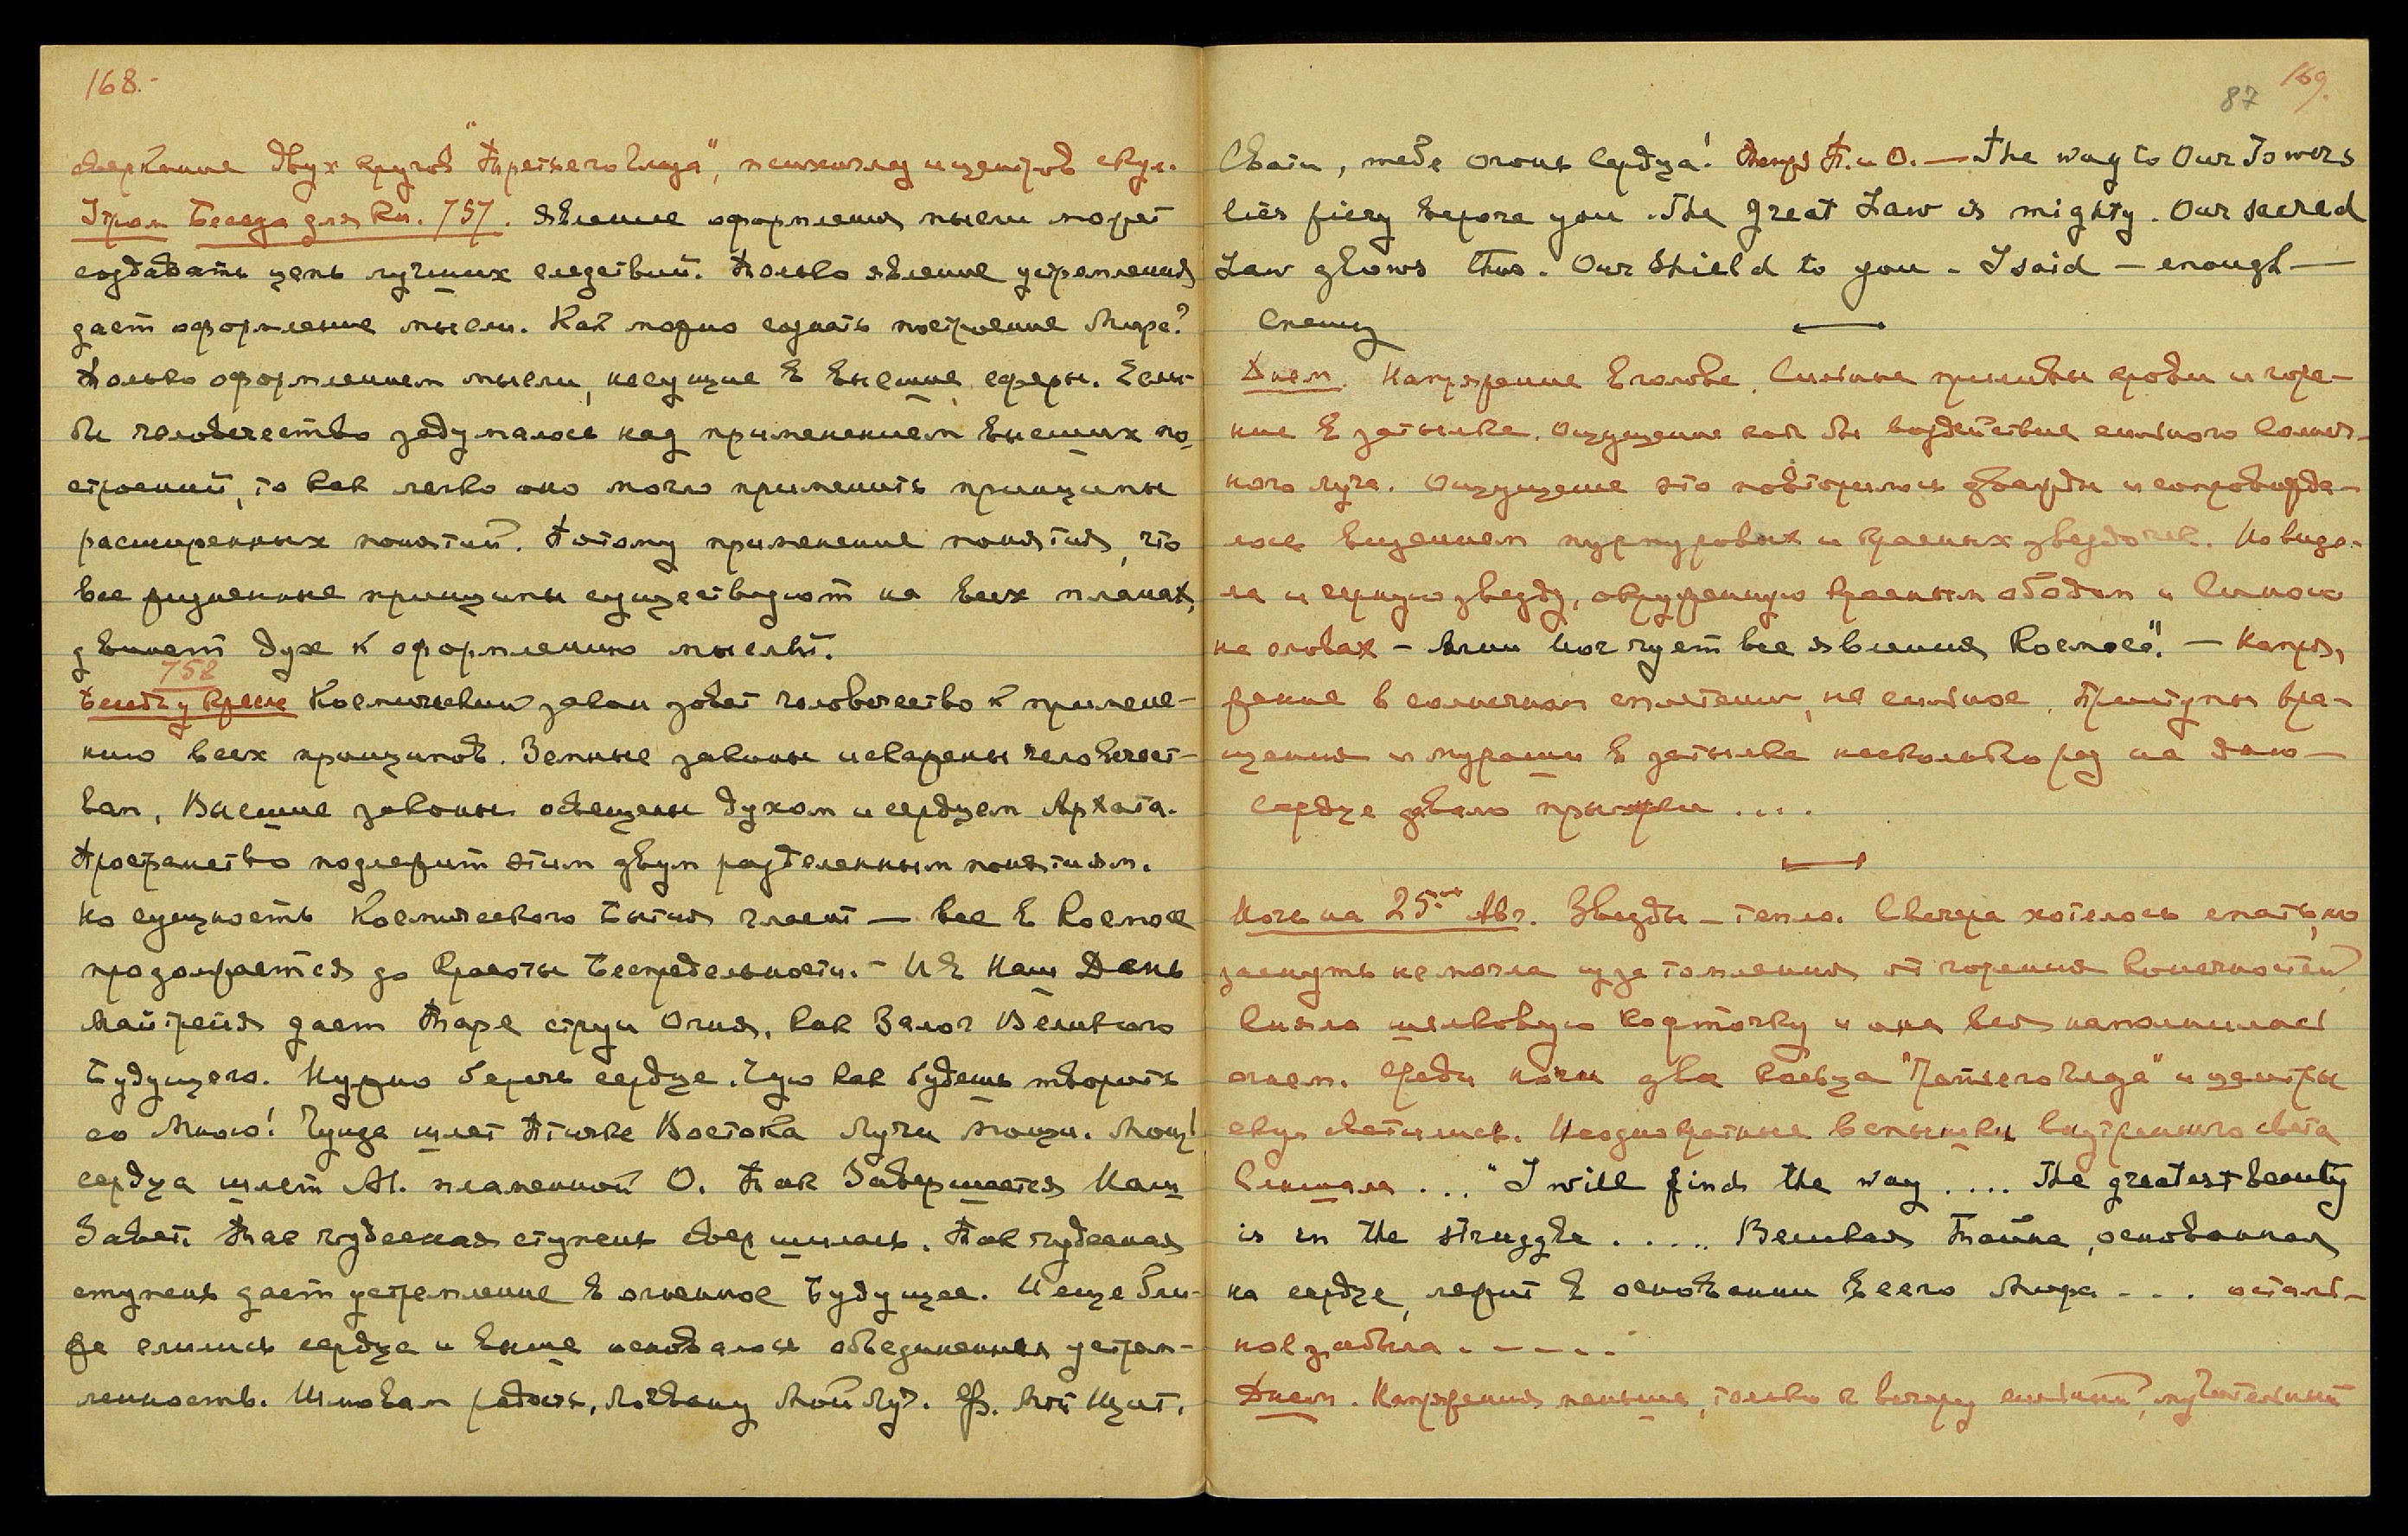 168.-
сверкание двух кругов "Третьего глаза", и центров скул.
Утром Беседа для Кн. 757. Явление оформления мысли может
создавать цепь лучших следствий. Только явление устремления
дает оформление мысли. Как можно создать построение Мира?
Только оформлением мысли, несущие в Высшие сферы. Если-
бы человечество задумалось над применением высших по-
строений, то как легко оно могло применить принципы
расширенных понятий. Потому применение понятия, что
все жизненные принципы существуют на всех планах,
двинет дух к оформлению мыслей.
758
Беседа у Кресла Космический закон зовет человечество к примене-
нию всех принципов. Земные законы искажены человечест-
вом, Высшие законы освещены духом и сердцем Архата.
Пространство подлежит этим двум разделенным понятиям.
Но сущность Космического Бытия гласит — все в Космосе
продолжается до красоты Беспредельности. - И в Наш День
Майтрейя дает Таре струи Огня, как Залог Великого
Будущего. Нужно беречь сердце. Чую как будешь творить
со Мною! Гуида шлет Птичке Востока Лучи мощи. Мощь
сердца шлет Ал. пламенной О. Так Завершается Наш
Завет. Так чудесная ступень свершилась. Так чудесная
ступень дает устремление в огненное Будущее. И еще бли-
же слились сердца и выше объединенная устрем-
ленность. Шлю вам радость, Мой Луч. Ф. Мой Щит.
169.
87
Свати, тебе огонь сердца! П. и О. — The way to Our Towers
lies fiery before you. The great Law is mighty. Our sacred
Law glows thus. Our Shield to you - I said — enough —
Спешу
Днем. Напряжение в голове. Сильные приливы крови и горе-
ние в затылке. Ощущение как бы воздействие сильного солнеч-
ного луча. Ощущение это повторилось дважды и сопровожда-
лось видением пурпуровых и красных звездочек. Но виде-
ла и черную звезду, окруженную красным ободом и
на словах - Агни Йог чует все явления Космоса". — Напря-
жение в солнечном сплетении, не сильное. Приступы вра-
щения и мурашки в затылке несколько раз на дню —
Сердце давало прыжки ....
Ночь на 25ое Авг. Звезды - тепло. С вечера хотелось спать, но
заснуть не могла из за томления от горения конечностей
Сняла шелковую кофточку и она вся наполнилась
огнем. Среди ночи два кольца "Третьего глаза" и центры
скул светились. Неоднократные вспышки внутреннего света
Слышала ... "I will find the way .... The greatest beauty
is in the struggle ..... Великая Тайна, основанная
на сердце, лежит в основании всего Мира ... осталь-
ное забыла ......
Днем. Напряжения меньше, только к вечеру сильный, мучительный